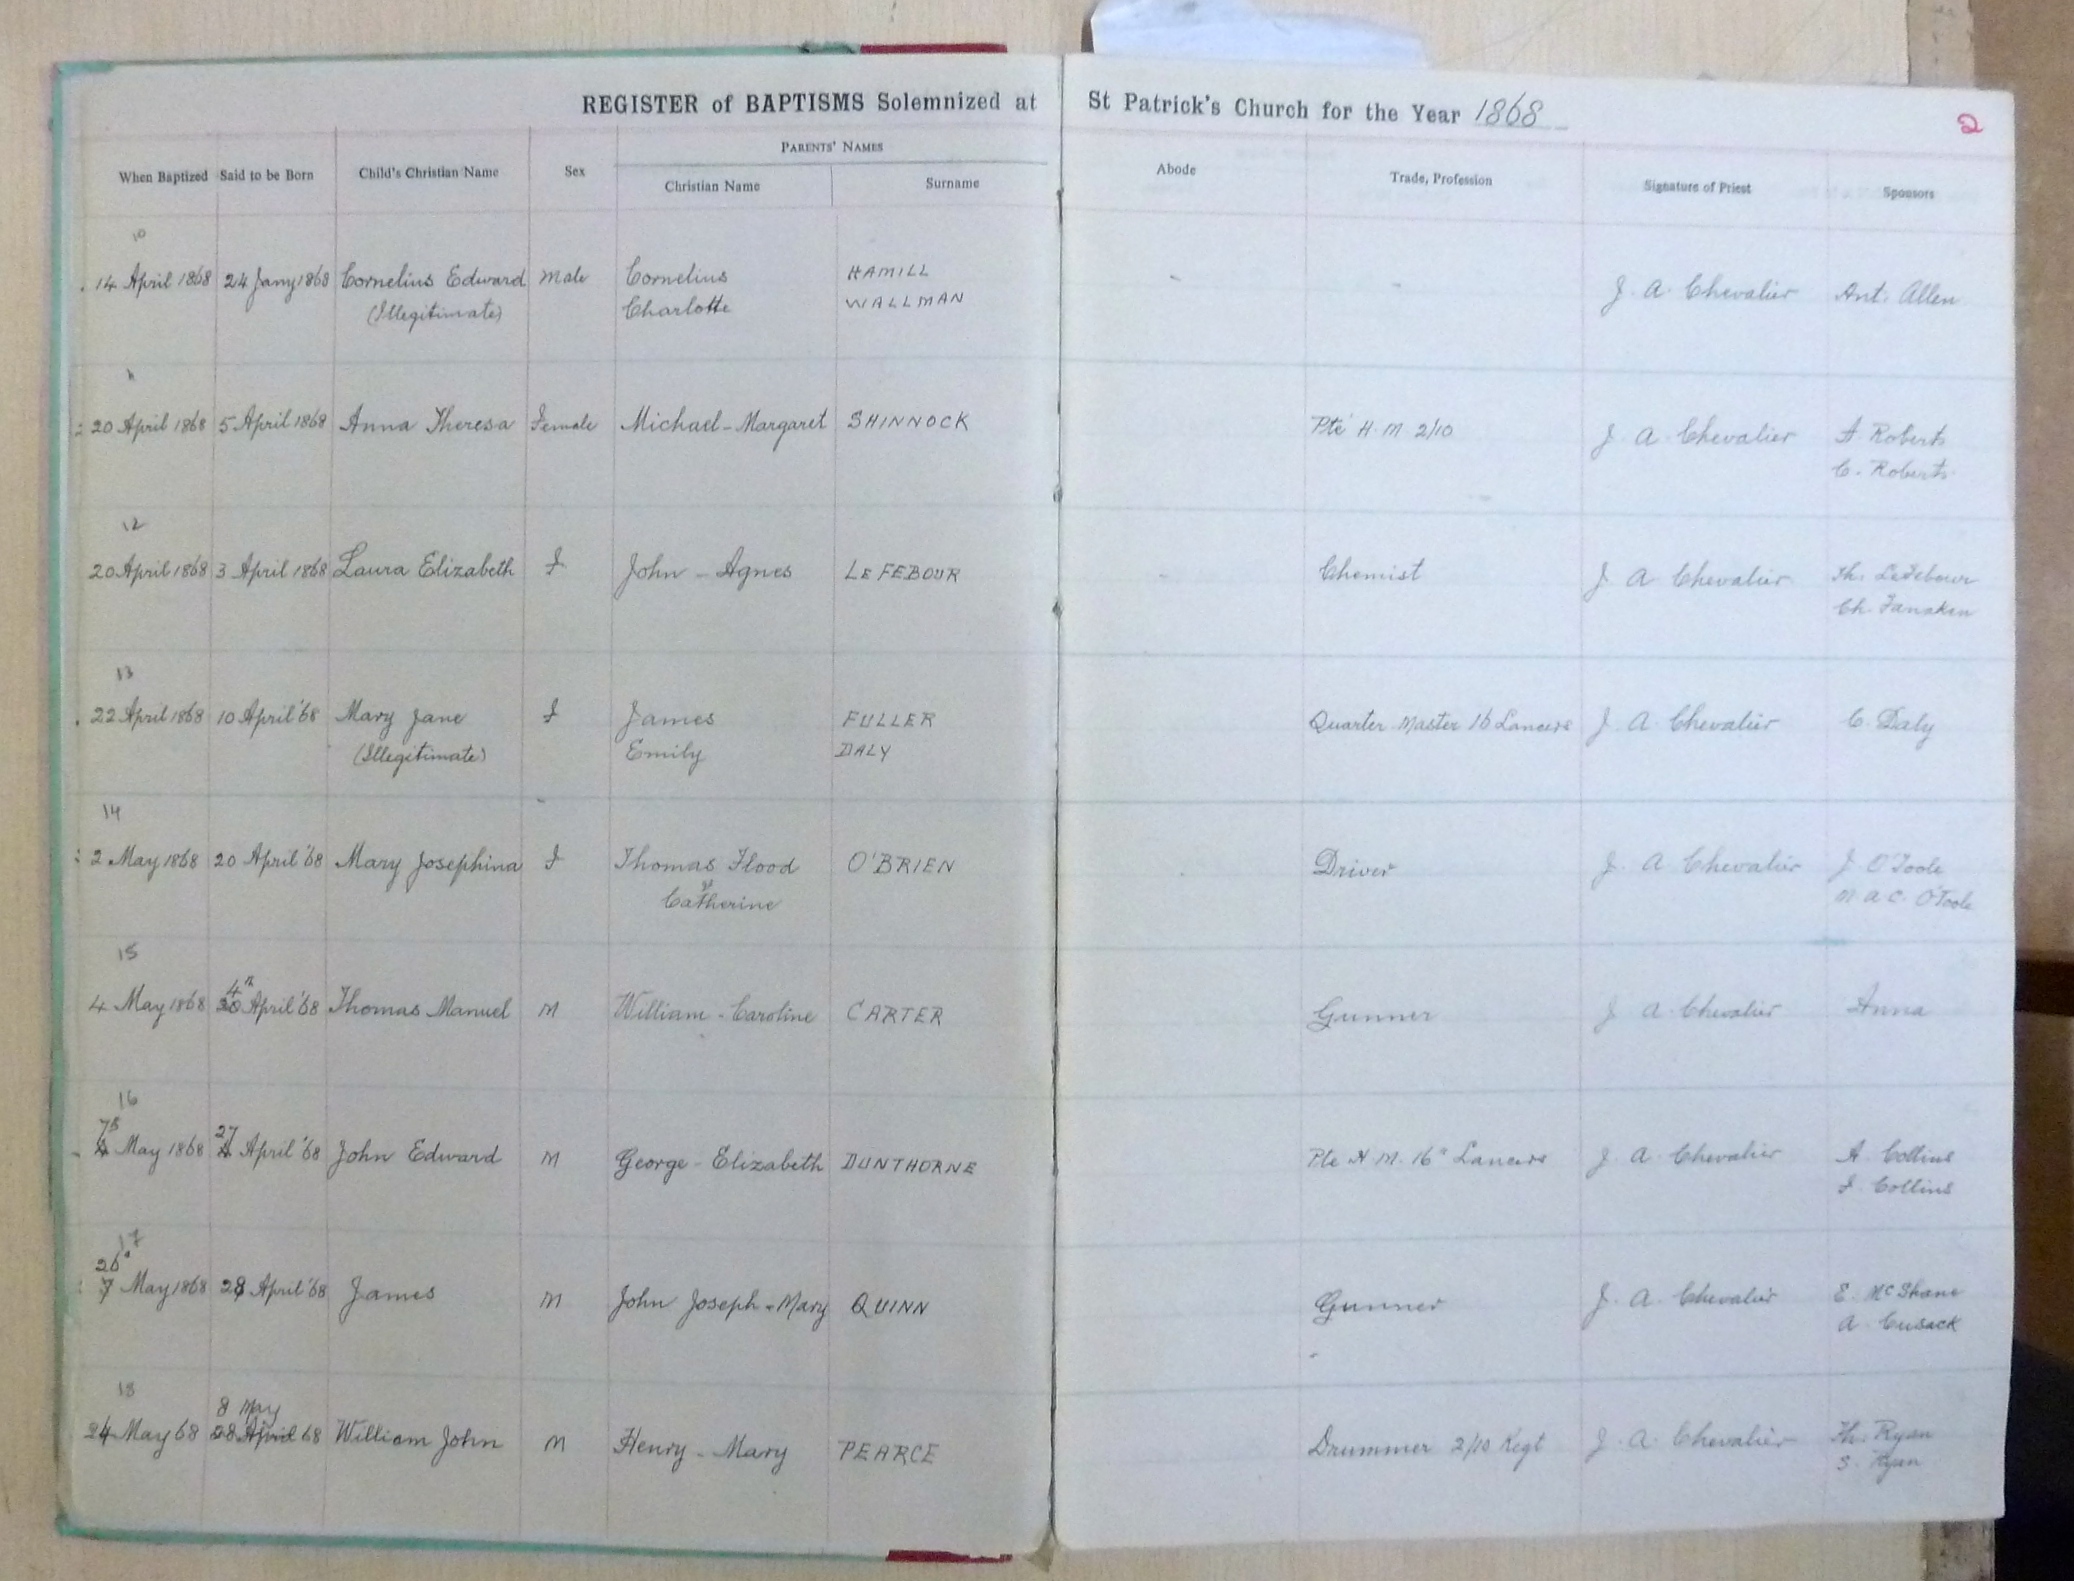 REGISTER of BAPTISMS Solemnized at St Patrick's Church for the Year 1868
2
When Baptized Said to be Born Child's Christian Name Sex PARENTS' NAMES Christian Name Surname Abode Trade, Profession Signature of Priest Sponsors
10
14 April 1868 24 Jany 1868 Cornelius Edward Male Cornelius HAMILL J. A. Chevalier Ant. Allen
(Illegitimate) Charlotte WALLMAN
20 April 1868 5 April 1868 Anna Theresa Female Michael - Margaret SHINNOCK Pte H. M. 2/10 J. A. Chevalier A Roberts
C. Roberts
12
20 April 1868 3 April 1868 Laura Elizabeth F John - Agnes LE FEBOUR Chemist J. A. Chevalier Th. LeFebour
Ch. Fanaken
13
22 April 1868 10 April '68 Mary Jane F James FULLER Quarter Master 16 Lancers J. A. Chevalier C. Daly
(Illegitimate) Emily DALY
14
2 May 1868 20 April '68 Mary Josephina F Thomas Flood O'BRIEN Driver J. A. Chevalier J O'Toole
Catherine M. A. C. O'Toole
15
4th
4 May 1868 30 April '68 Thomas Manuel M William - Caroline CARTER Gunner J. A. Chevalier Anna
16
7th 27
4 May 1868 April '68 John Edward M George - Elizabeth DUNTHORNE Pte H. M. 16" Lancers J. A. Chevalier A. Collins
J. Collins
17
26
7 May 1868 28 April '68 James M John Joseph - Mary QUINN Gunner J. A. Chevalier E. McShane
A. Cusack
18
8 May
24 May 68 28 April 68 William John M Henry - Mary PEARCE Drummer 2/10 Regt J. A. Chevalier Th. Ryan
S. Ryan